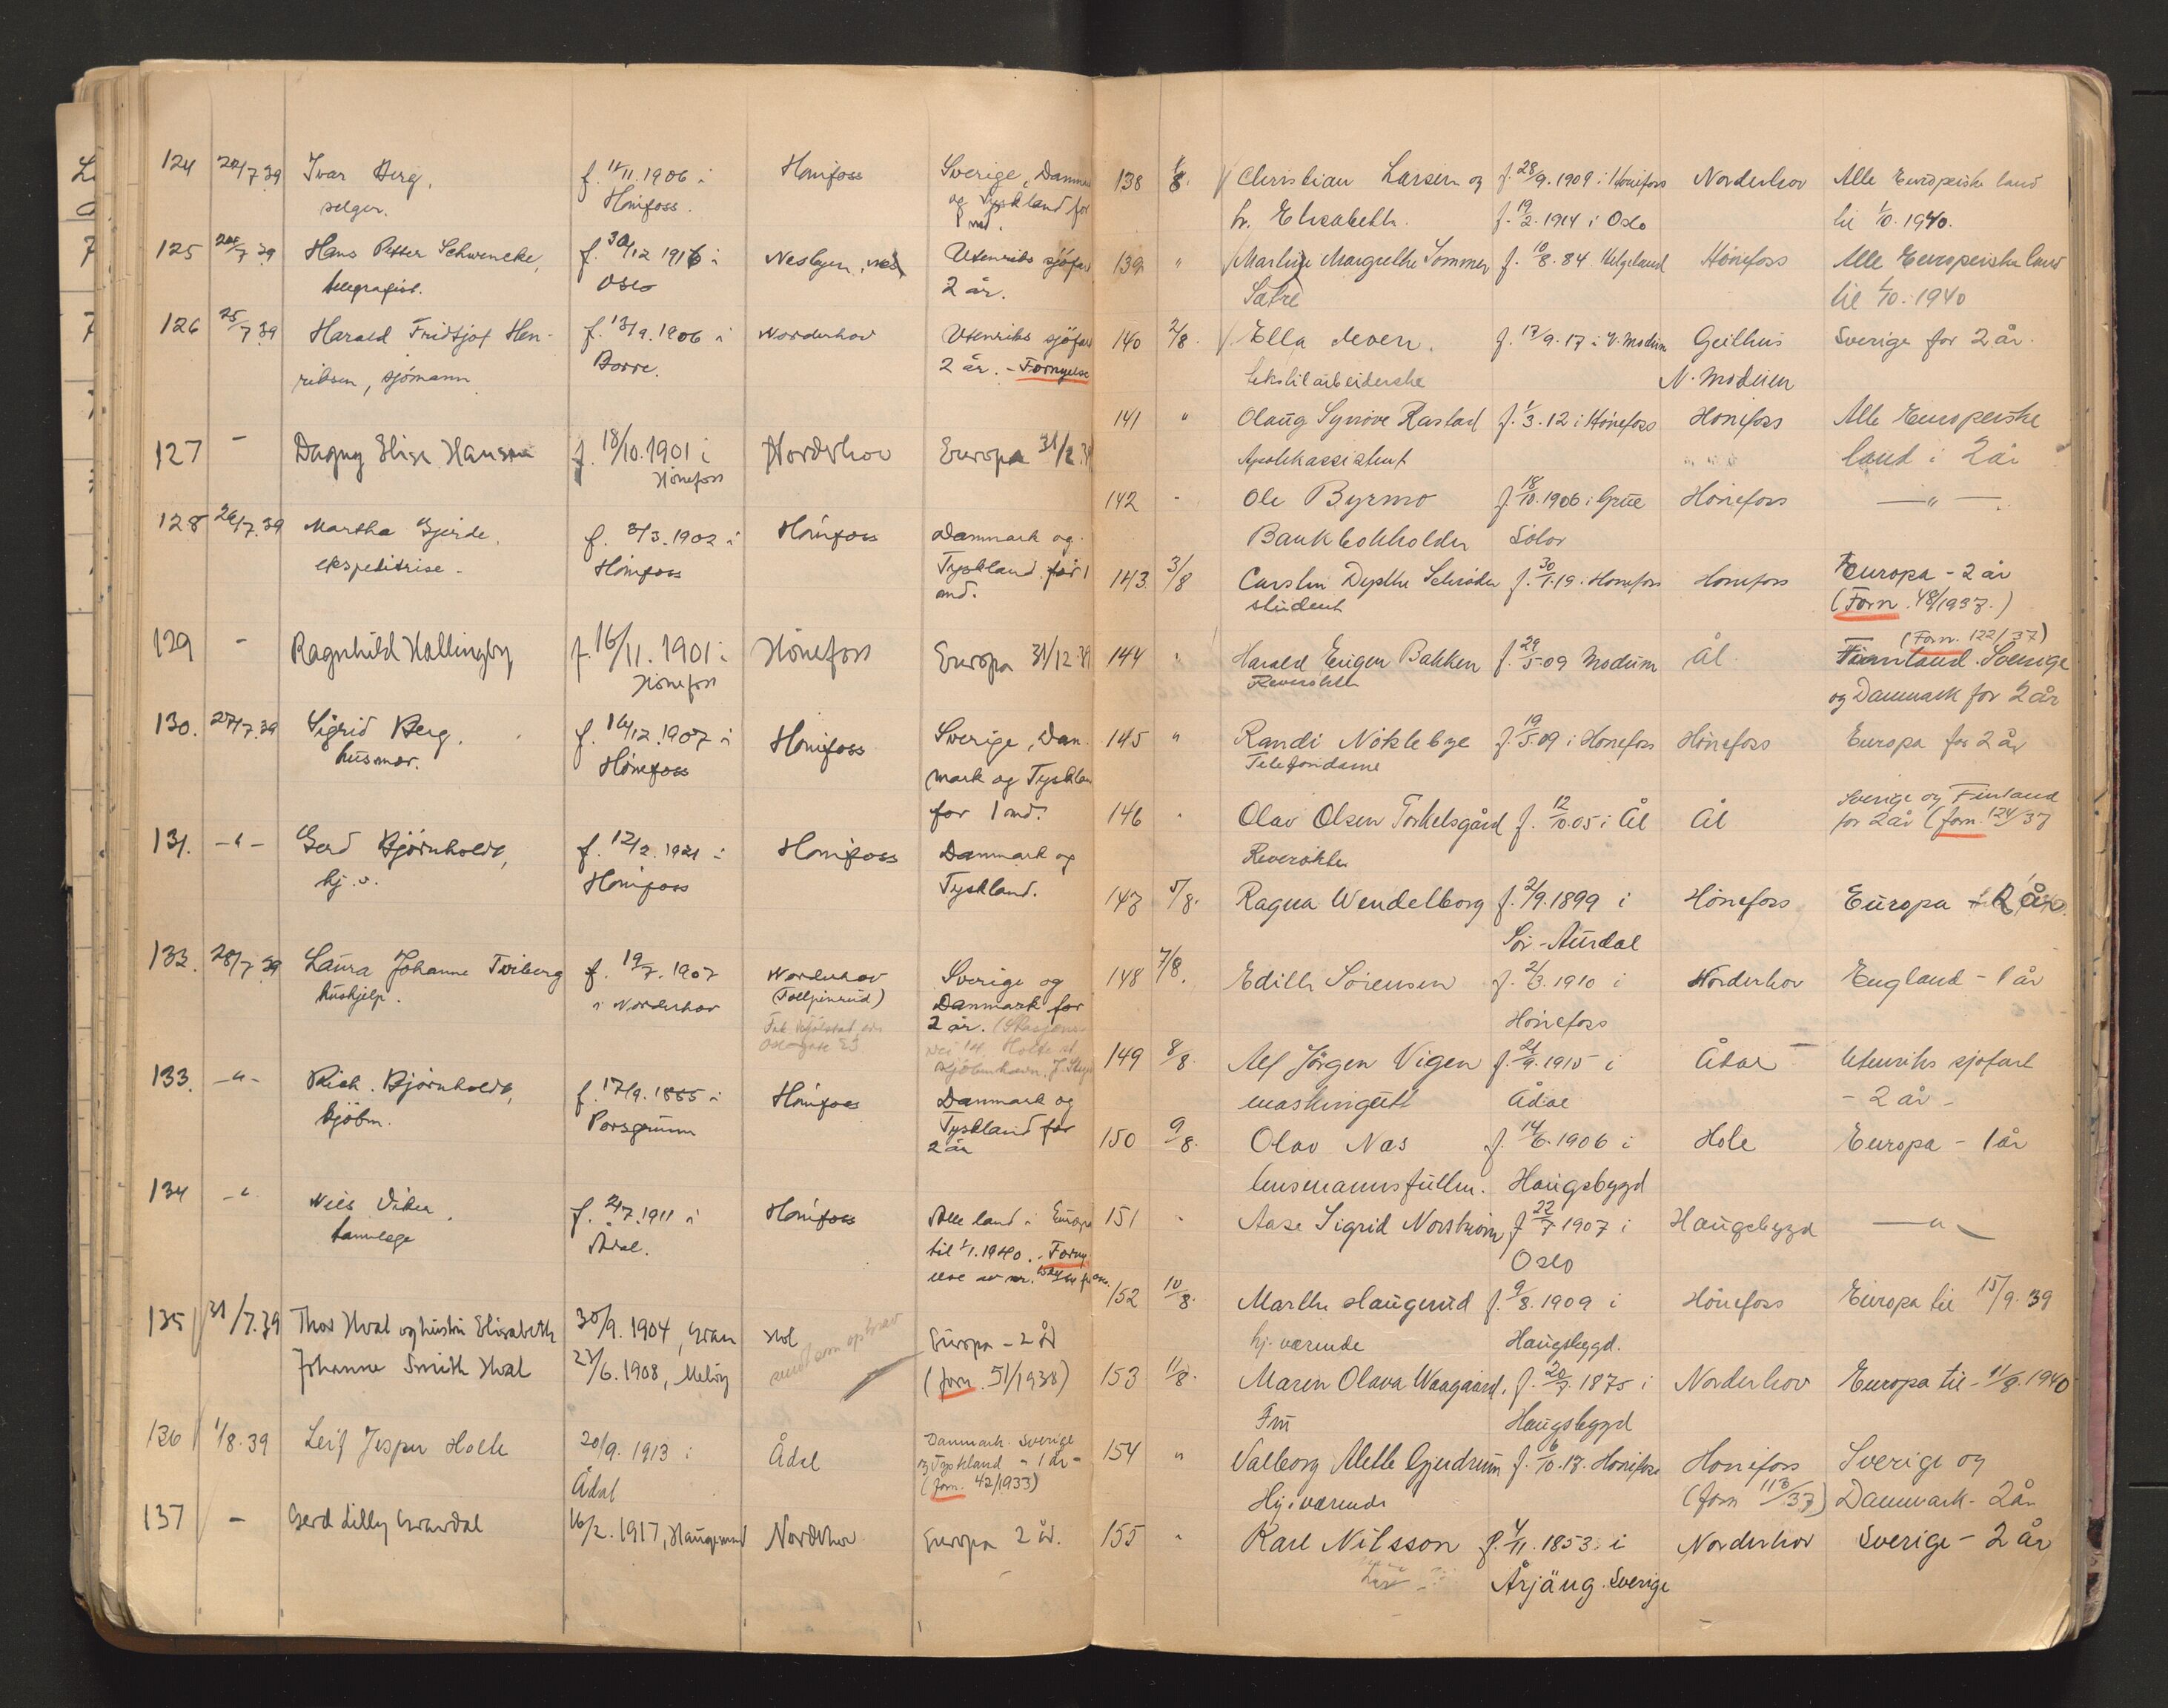 124 24/7.39 Ivar Berg, f. 11/11.1906 i Hönefoss Sverige, Danmark
selger. Hönefoss. og Tyskland for
1 md.
125 24/7.39 Hans Petter Schwencke, f. 30/12 1916 i Nesbyen, Nes Utenriks sjöfart
telegrafist. Oslo 2 år.
126 25/7.39 Harald Fridtjof Hen- f. 13/9.1906 i Norderhov Utenriks sjöfart
riksen, sjömann Borre. 2 år. - Fornyelse
127 - Dagny Elise Hansen f. 18/10.1901 i Norderhov Europa 31/12.39
Hönefoss
128 26/7.39 Martha Gjerde, f. 8/3.1902 i Hönefoss Danmark og
ekspeditrise. Hönefoss Tyskland for 1
md.
129 - Ragnhild Hallingby f. 16/11.1901 i Hönefoss Europa 31/12.39
Hönefoss
130. 27/7.39 Sigrid Berg, f. 14/12.1907 i Hönefoss Sverige, Dan-
husmor. Hönefoss mark og Tyskland
for 1 md.
131. -"- Gerd Bjørnholdt, f. 12/2.1921 i Hönefoss Danmark og
hj.v. Hönefoss Tyskland.
132. 28/7.39 Laura Johanne Tviberg f. 19/7.1907 Norderhov Sverige og
hushjelp. i Norderhov (Follpinrud) Danmark for
2 år. (Stasjons-
vei 14, Holte st
Kjöbenhavn.
133. -"- Rich. Bjørnholdt, f. 17/9.1885 i Hönefoss Danmark og
kjöbm. Porsgrunn Tyskland for
2 år
134 -"- Nils Viker, f. 21/7.1911 i Hönefoss Alle land i Europa
tannlege Ådal. til 1/1.1940. Forny-
else av nr.
135 31/7.39 Thor Hval og hustru Elisabeth 30/9.1904, Gran Hol Europa - 2 år
Johanne Smith Hval 23/6.1908, Melöy (forn. 51/1938)
136 1/8.39 Leif Jesper Holte 20/9.1913 i Ådal Danmark. Sverige
Ådal og Tyskland - 1 år -
(forn. 42/1933)
137 - Gerd Lilly Grandal 16/2.1917, Haugesund Norderhov Europa 2 år.
138 1/8. Christian Larsen og f. 28/9.1909 i Hönefoss Norderhov Alle Europeiske land
h. Elisabeth. f. 19/2.1914 i Oslo til 1/10.1940.
139 " Martine Margrethe Sommer f. 10/8.84 Helgeland Hönefoss Alle Europeiske land
Sætre til 1/10.1940
140 2/8. Ella Leven. f. 17/9.17 i V. Modum Geithus Sverige for 2 år.
tekstilarbeiderske N. Modum
141 " Olaug Synnöve Rastad f. 1/3.12 i Hönefoss Hönefoss Alle Europeiske
Apotekassistent land i 2 år
142 " Ole Byrmo f. 18/10.1906 i Grue Hönefoss -"-
Bankbokholder Solör
143 3/8 Carsten Dysthe Schröder f. 30/1.19 i Hönefoss Hönefoss Europa - 2 år
student (Forn. 48/1937.)
144 " Harald Eugen Bakken f. 29/5.09 Modum Ål (Forn. 122/37)
Revesökter Finnland. Sverige
og Danmark for 2 år
145 " Randi Nöklebye f. 19/5.09 i Hönefoss Hönefoss Europa for 2 år
Telefondame
146 " Olav Olsen Torkelsgård f. 12/10.05 i Ål Ål Sverige og Finland
Reverökter for 2 år (forn. 124/37
147 5/8. Ragna Wendelborg f. 2/9.1899 i Hönefoss Europa 2 år
Sör-Aurdal
148 7/8. Edith Sörensen f. 2/3.1910 i Norderhov England - 1 år
Hönefoss
149 8/8. Alf Jörgen Vigen f. 21/9.1915 i Ådal Utenriks sjöfart
maskingutt Ådal - 2 år -
150 9/8. Olav Næs f. 14/6.1906 i Hole Europa - 1 år
lensmannsfullm. Haugsbygd
151 " Aase Sigrid Norström f. 22/7.1907 i Haugsbygd -"-
Oslo
152 10/8. Marthe Haugerud f. 9/8.1909 i Hönefoss Europa til 15/9.39
hj. værende Haugsbygd.
153 11/8. Maren Olava Waagaard, f. 20/7.1875 i Norderhov Europa til 11/8.1940
Fru Haugsbygd
154 " Valborg Alette Gjerdrum f. 6/10.17. Hönefoss Hönefoss Sverige og
Hj. værende (forn 113/37) Danmark - 2 år
155 " Karl Nilsson f. 4/11.1853 i Norderhov Sverige - 2 år
Årjäng. Sverige